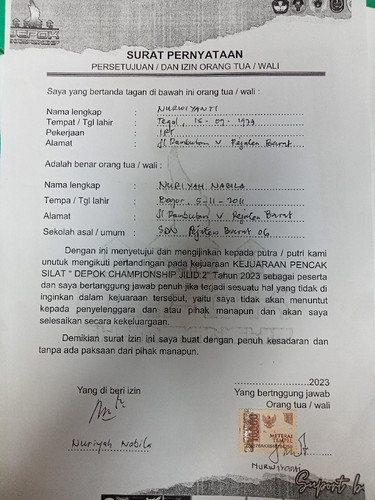 DEPOK
SURAT PERNYATAAN
PERSETUJUAN / DAN IZIN ORANG TUA / WALI
Saya yang bertanda tagan di bawah ini orang tua / wali :
Nama lengkap : NURWIYANTI
Tempat / Tgl lahir : Tegal, 15-07-1974
Pekerjaan : IRT
Alamat : Jl Rambutan V Pejaten Barat
Adalah benar orang tua / wali :
Nama lengkap : NURIYAH NABILA
Tempa / Tgl lahir : Bogor, 5-11-2011
Alamat : Jl Rambutan V Pejaten Barat
Sekolah asal / umum : SDN Pejaten Barat 06
Dengan ini menyetujui dan mengijinkan kepada putra / putri kami
unutuk mengikuti pertandingan pada kejuaraan KEJUARAAN PENCAK
SILAT " DEPOK CHAMPIONSHIP JILID 2" Tahun 2023 sebagai peserta
dan saya bertanggung jawab penuh jika terjadi sesuatu hal yang tidak di
inginkan dalam kejuaraan tersebut, yaitu saya tidak akan menuntut
kepada penyelenggara dan atau pihak manapun dan akan saya
selesalkan secara kekeluargaan.
Demikian surat izin ini saya buat dengan penuh kesadaran dan
tanpa ada paksaan dari pihak manapun.
..................2023
Yang di beri izin
Yang bertnggung jawab
Orang tua / wali
10000
METERAI
TEMPEL
Nuriyah Nabila
NURWIYANTI
Suport b